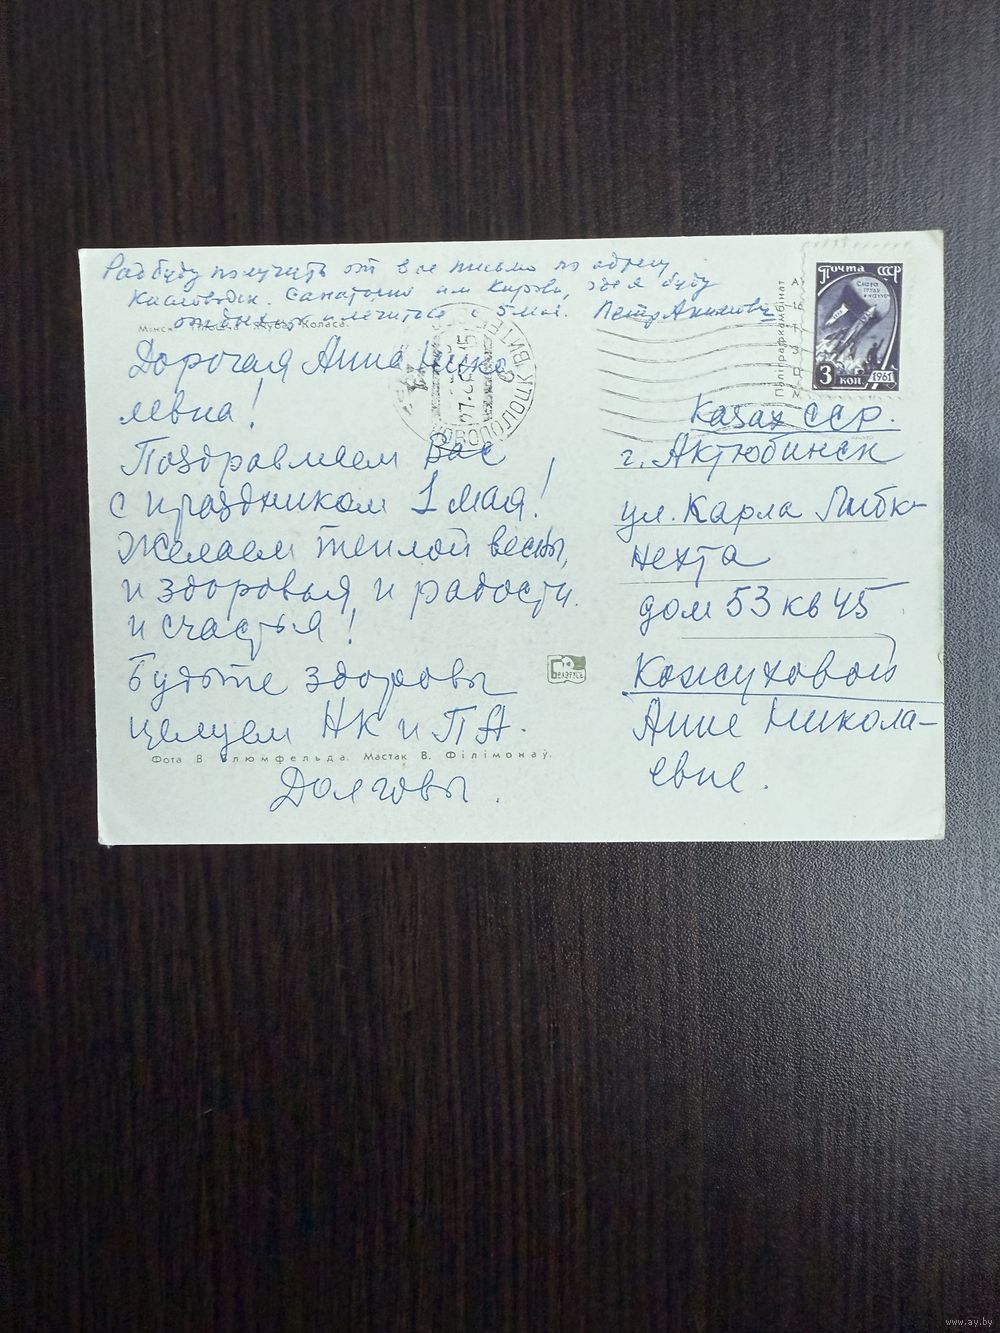 Рад буду получить от вас письмо по адресу
Кисловодск. Санаторий им Кирова, где я буду
отдыхать и лечиться с 5 мая. Петр Акимович
Мінск. Якуба Коласа.
Дорогая Анна Нико-
лаевна!
Поздравляем Вас
с праздником 1 мая!
Желаем теплой весны,
и здоровья и радости
и счастья!
Будьте здоровы
целуем НК и ПА.
Фота В. Блюмфельда. Мастак В. Філімонаў.
Долговы.
БЕЛАРУСЬ
НОВОПОЛОЦК ВИТЕБ
Паліграфкамбінат
Почта СССР
СЛАВА ТРУДУ И НАУКЕ!
3 коп. 1961
Казах ССР.
г. Актюбинск
ул. Карла Либк-
нехта
дом 53 кв 45
Кожуховой
Анне Никола-
евне.
www.ay.by